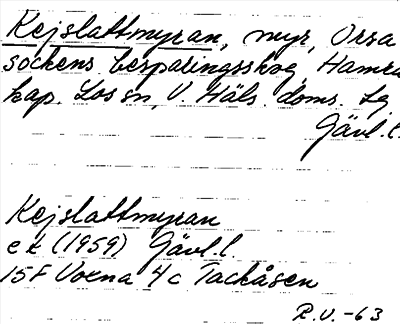 Kejslattmyran, myr, Orsa
sockens besparingsskog, Hamra
kap. Los sn, V. Häls. doms. lg
Gävl.l.
Kejslattmyran
ek (1959) Gävl.l.
15F Voxna 4c Tackåsen
R.V. -63